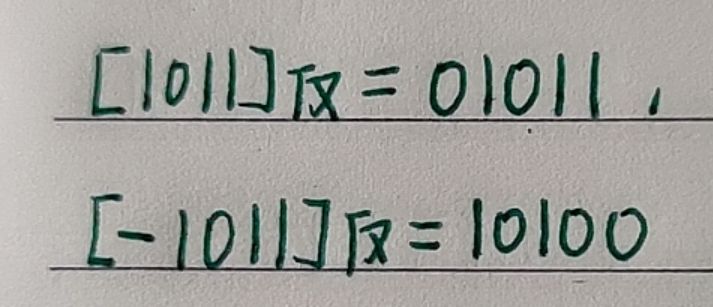 [1011]反 = 01011,
[-1011]反 = 10100